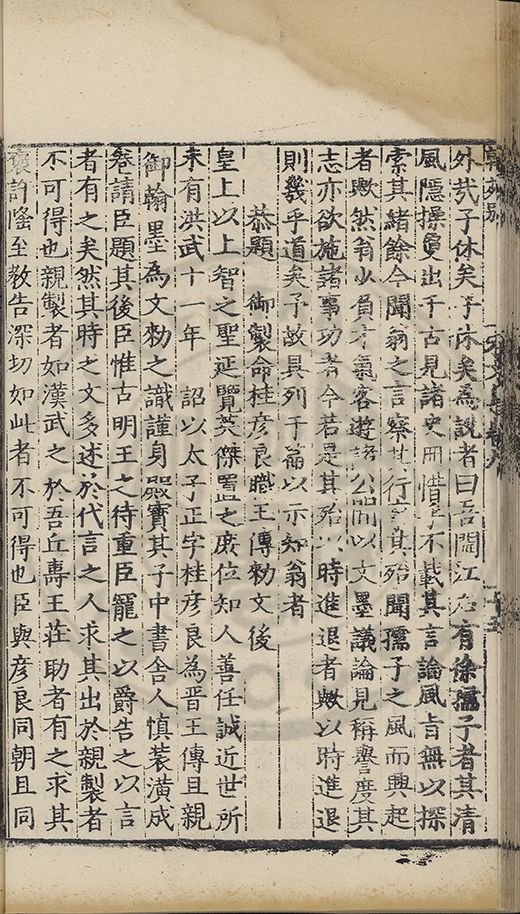 外哉子休矣子休矣為說者曰吾聞江左有徐孺子者其清
風隱操夐出千古見諸史冊惜乎不載其言論風旨無以探
索其緒餘今聞翁之言察其行事其殆聞孺子之風而興起
者歟然翁少負才氣客遊諸公間以文墨議論見稱譽度其
志亦欲施諸事功者今若是其殆以時進退者歟以時進退
則幾乎道矣予故具列于篇以示知翁者
恭題 御製命桂彥良職王傅勑文後
皇上以上智之聖延覽英傑置之庶位知人善任誠近世所
未有洪武十一年 詔以太子正字桂彥良為晋王傅且親
御翰墨為文勑之識謹身殿寶其子中書舍人慎裝潢成
卷請臣題其後臣惟古明王之待重臣寵之以爵告之以言
者有之矣然其時之文多述於代言之人求其出於親製者
不可得也親製者如漢武之於吾丘壽王莊助者有之求其
褒許隆至教告深切如此者不可得也臣與彥良同朝且同